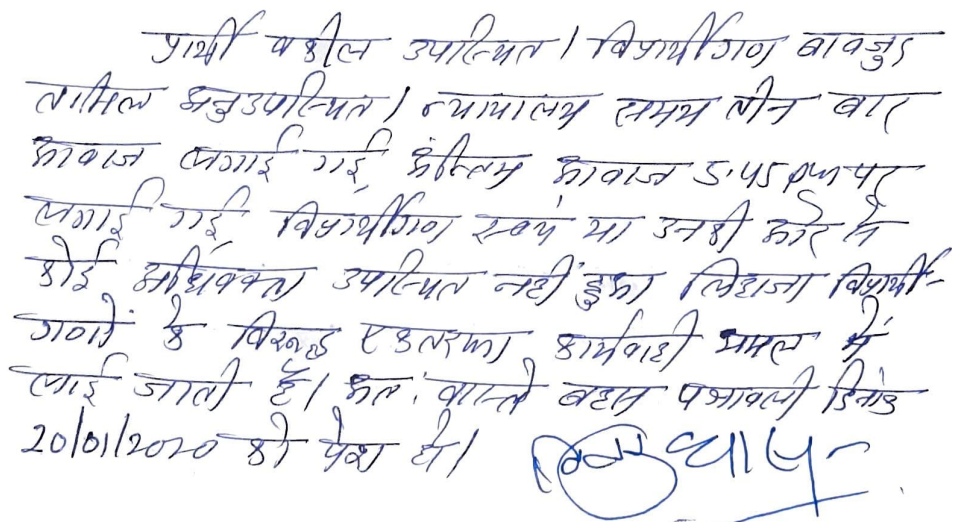 प्रार्थी वकील उपस्थित। विप्रार्थीगण बावजुद
तामिल अनुउपस्थित। न्यायालय समय तीन बार
आवाज लगाई गई, अन्तिम आवाज 5.45 pm पर
लगाई गई, विप्रार्थीगण स्वयं या उनकी ओर से
कोई अधिवक्ता उपस्थित नहीं हुआ लिहाजा विप्रार्थी-
गणों के विरूद्ध एकतरफा कार्यवाही अमल में
लाई जाती है। अतः वास्ते बहस पत्रावली दिनांक
20/01/2020 को पेश हो।